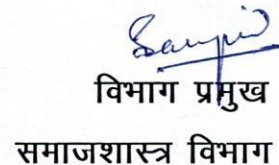 विभाग प्रमुख
समाजशास्त्र विभाग